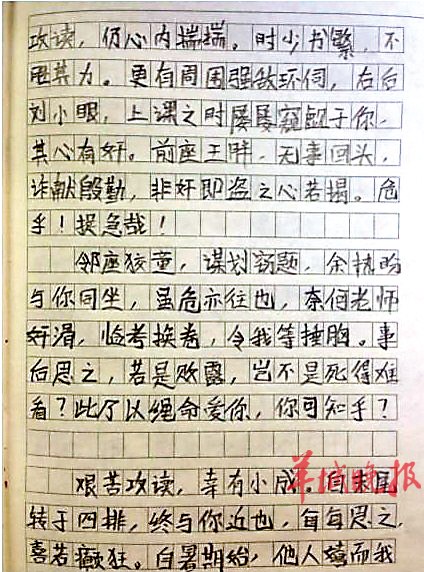 攻读，仍心内惴惴。时少书繁，不
胜其力。更有周围强敌环伺，右后
刘小眼，上课之时屡屡窥觑于你，
其心有奸。前座王胖，无事回头，
诈献殷勤，非奸即盗之心若揭。危
乎！损急哉！
邻座狡童，谋划窃题，余执的
与你同坐，虽危亦往也，奈何老师
奸滑，临考换卷，令我等捶胸。事
后思之，若是败露，岂不是死得难
看？此乃以绳命爱你，你可知乎？
艰苦攻读，幸有小成。自末尾
转于四排，终与你近也，每每思之，
喜若癫狂。自暑期始，他人嬉而我
羊城晚报